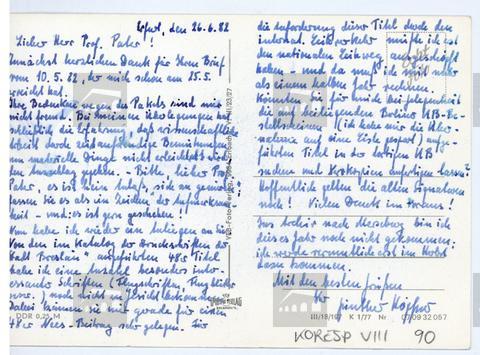 Erfurt, den 26.6.82
Lieber Herr Prof. Pater!
Zunächst herzlichen Dank für Ihren Brief
vom 10.5.82, der mich schon am 25.5.
erreicht hat.
Ihre Bedenken wegen des Pakets sind mir
nicht fremd. Bei meinen Überlegungen hat
schließlich die Erfahrung, daß wissenschaftliche
Arbeit durch zeitaufwendige Bemühungen
um materielle Dinge nicht erleichtert wird
den Ausschlag gegeben. - Bitte, lieber Prof.
Pater, es ist mein
lassen Sie es als ein Zeichen der
- und: es ist gern geschehen!
Nun habe ich wieder ein Anliegen an Sie:
Von den im Katalog der Druckschriften der
" Breslau" aufgeführten 48er Titel
habe ich eine Anzahl besonders inter-
essanter Schriften, Flugschriften, Flugblätter
noch nicht in
Dabei können sie mir gerade für einen
48er Nees-Beitrag sehr gelegen. Für
die Anforderung dieser Titel durch den
internat. Leihverkehr müßte ich erst
den nationalen Leihweg ausgeschöpft
haben - und da muß ich mit mehr
als einem halben Jahr rechnen.
Könnten Sie für mich bei Gelegenheit
die auf beiliegenden Berliner UB-Be-
stellscheinen (ich habe mir die
auf eine Liste gespart) aufge-
führten Titel in der dortigen UB
suchen und Kopien anfertigen lassen?
Hoffentlich gelten die alten Signaturen
noch! Vielen Dank im Voraus!
Ins Archiv nach Merseburg bin ich
dieses Jahr noch nicht gekommen;
ich werde vermutlich erst im Herbst
dazu kommen.
Mit den besten Grüßen
Ihr Günther
DDR 0,25 M
III/18/197 K 1/77 Nr. 07 09 32 057
KORESP VIII 90